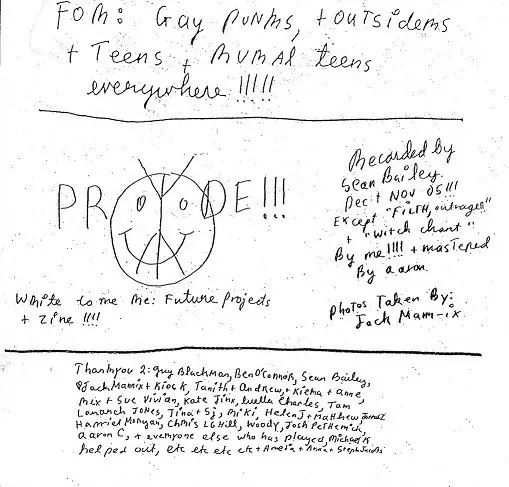 FOR: Gay PUNKS, + OUTSIDERS
+ Teens + RURAL teens
everywhere !!!!!
PRIDE!!!
Recorded by
Sean Bailey.
Dec + NOV 05!!!
Except "FILTH, outrages"
+ "witch chant"
By me!!!! + mastered
By aaron.
Photos Taken By:
Jack Mam-ix
Write to me Re: Future Projects
+ Zine !!!!
Thankyou 2: Guy Blackman, Ben O'Connor, Sean Bailey,
Jack Mamix + Kiosk, Tanith + Andrew, + Kiera + Anne,
Mix + Sue Vivian, Kate Jinx, Luella Charles, Tam
JONES, Jina + Sj, Miki, Helen J + Matthew
Harriet Morgan, Chris LG Hill, Woody, Josh
Aaron C, + everyone else who has played,
helped out, etc etc etc etc + Amelia + Anna + Steph